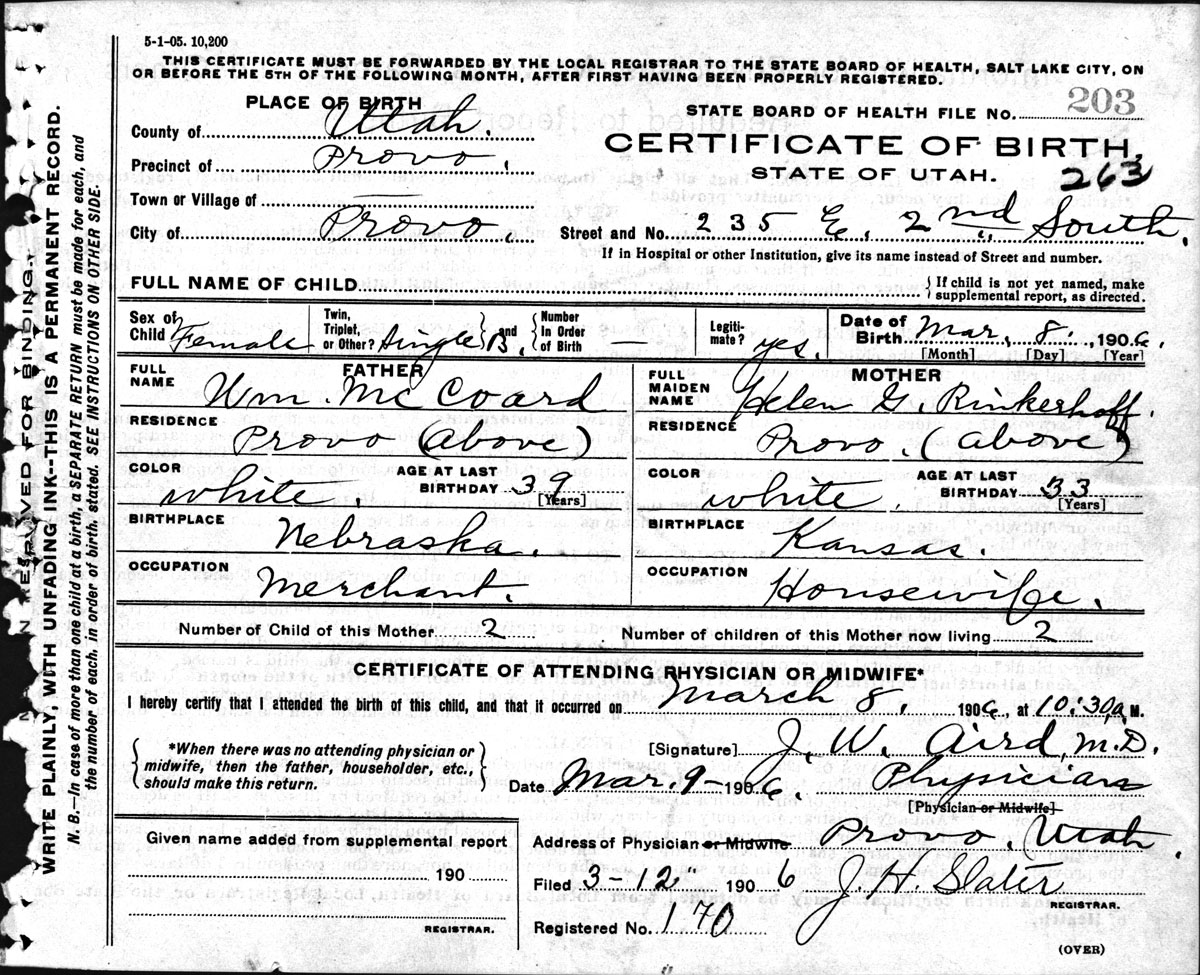 5-1-05. 10,200
THIS CERTIFICATE MUST BE FORWARDED BY THE LOCAL REGISTRAR TO THE STATE BOARD OF HEALTH, SALT LAKE CITY, ON
OR BEFORE THE 5TH OF THE FOLLOWING MONTH, AFTER FIRST HAVING BEEN PROPERLY REGISTERED.
PLACE OF BIRTH
County of Utah.
Precinct of Provo.
Town or Village of —
City of Provo.
STATE BOARD OF HEALTH FILE NO. 203
CERTIFICATE OF BIRTH,
STATE OF UTAH.
263
Street and No. 235 E. 2nd South.
If in Hospital or other Institution, give its name instead of Street and number.
FULL NAME OF CHILD
If child is not yet named, make
supplemental report, as directed.
Sex of Child Female
Twin, Triplet, or Other? Single B. and Number In Order of Birth —
Legiti-mate? yes.
Date of Birth Mar. 8. 1906.
[Month] [Day] [Year]
FATHER
FULL NAME Wm. McCoard
RESIDENCE Provo (above)
COLOR white. AGE AT LAST BIRTHDAY 39
[Years]
BIRTHPLACE Nebraska.
OCCUPATION Merchant.
MOTHER
FULL MAIDEN NAME Helen G. Rinkerhoff.
RESIDENCE Provo. (above)
COLOR white. AGE AT LAST BIRTHDAY 33
[Years]
BIRTHPLACE Kansas.
OCCUPATION Housewife.
Number of Child of this Mother 2
Number of children of this Mother now living 2
CERTIFICATE OF ATTENDING PHYSICIAN OR MIDWIFE*
I hereby certify that I attended the birth of this child, and that it occurred on March 8, 1906, at 10:30 a. M.
*When there was no attending physician or
midwife, then the father, householder, etc.,
should make this return.
[Signature] J. W. Aird, M.D.
Date Mar. 9- 1906. Physician
[Physician or Midwife]
Given name added from supplemental report
190
REGISTRAR.
Address of Physician or Midwife Provo, Utah.
Filed 3-12" 1906 J. H. Slater
REGISTRAR.
Registered No. 170
(OVER)
RESERVED FOR BINDING.
WRITE PLAINLY, WITH UNFADING INK--THIS IS A PERMANENT RECORD.
N. B.—In case of more than one child at a birth, a SEPARATE RETURN must be made for each, and
the number of each, in order of birth, stated. SEE INSTRUCTIONS ON OTHER SIDE.